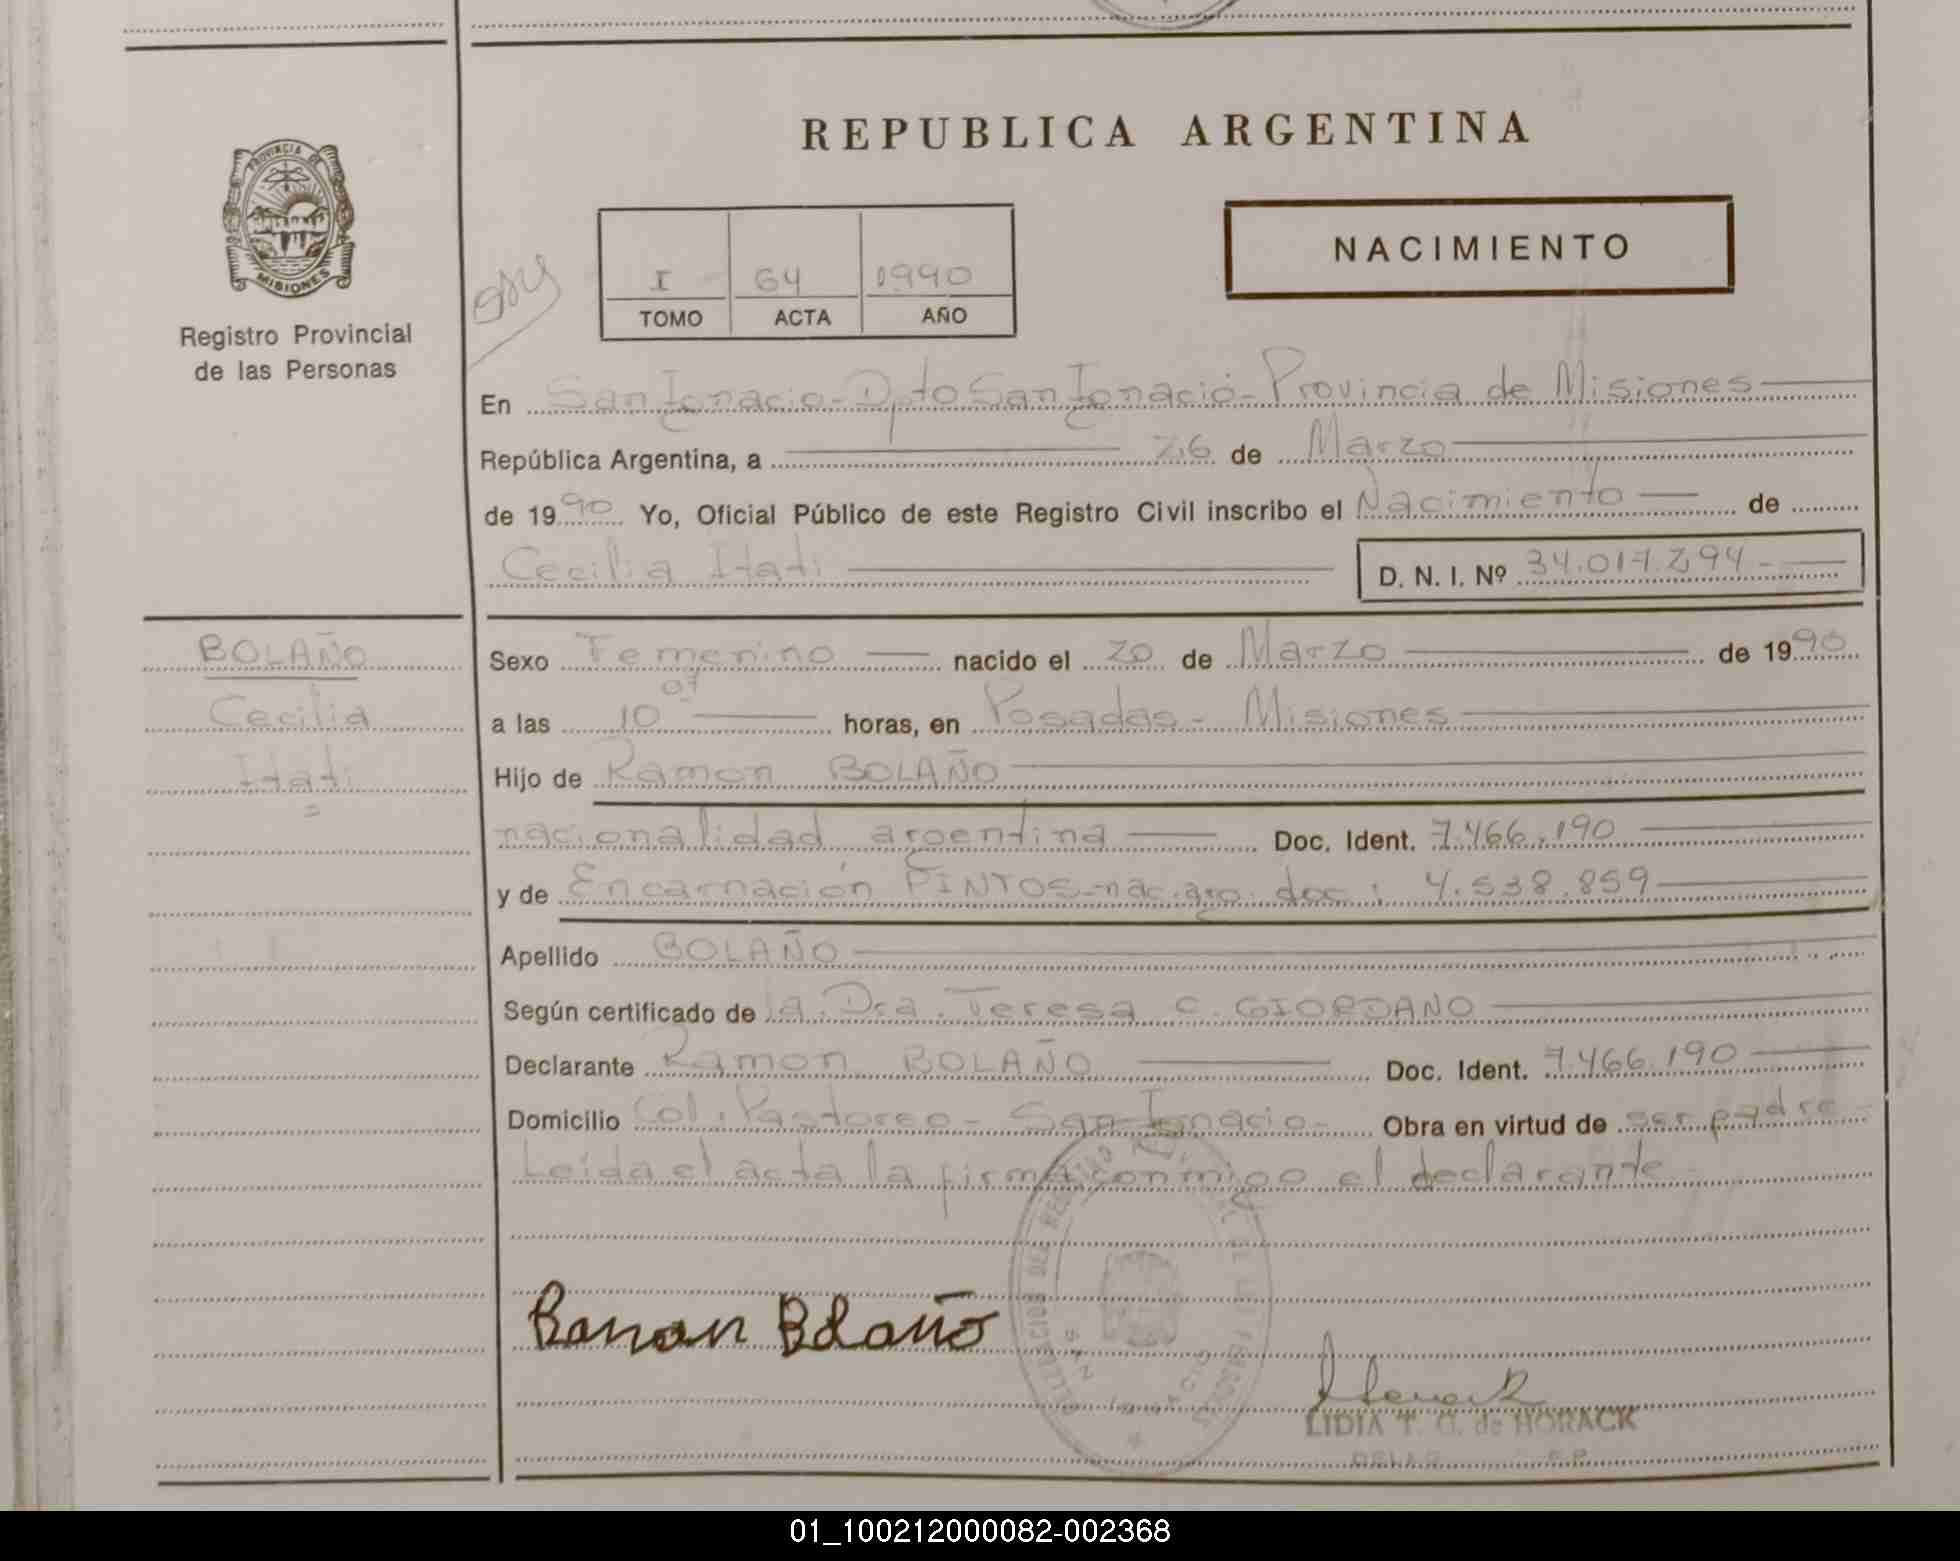 REPUBLICA ARGENTINA
PROVINCIA DE
MISIONES
Registro Provincial
de las Personas
NACIMIENTO
I 64 1990
TOMO ACTA AÑO
En San Ignacio - Dpto San Ignacio - Provincia de Misiones
República Argentina, a 26 de Marzo
de 1990 Yo, Oficial Público de este Registro Civil inscribo el Nacimiento de
Cecilia Itatí D. N. I. Nº 34.017.294
BOLAÑO
Cecilia
Itatí
Sexo Femenino nacido el 20 de Marzo de 1990
07
a las 10 horas, en Posadas - Misiones
Hijo de Ramon BOLAÑO
nacionalidad argentina Doc. Ident. 7.466.190
y de Encarnación PINTOS - nac. arg. doc: 4.538.859
Apellido BOLAÑO
Según certificado de la Dra. Teresa C. GIORDANO
Declarante Ramon BOLAÑO Doc. Ident. 7.466.190
Domicilio Col. Pastoreo - San Ignacio - Obra en virtud de ser padre
Leída el acta la firma conmigo el declarante
Ramon Bolaño
SAN IGNACIO
LIDIA T. G. de HORACK
01_100212000082-002368